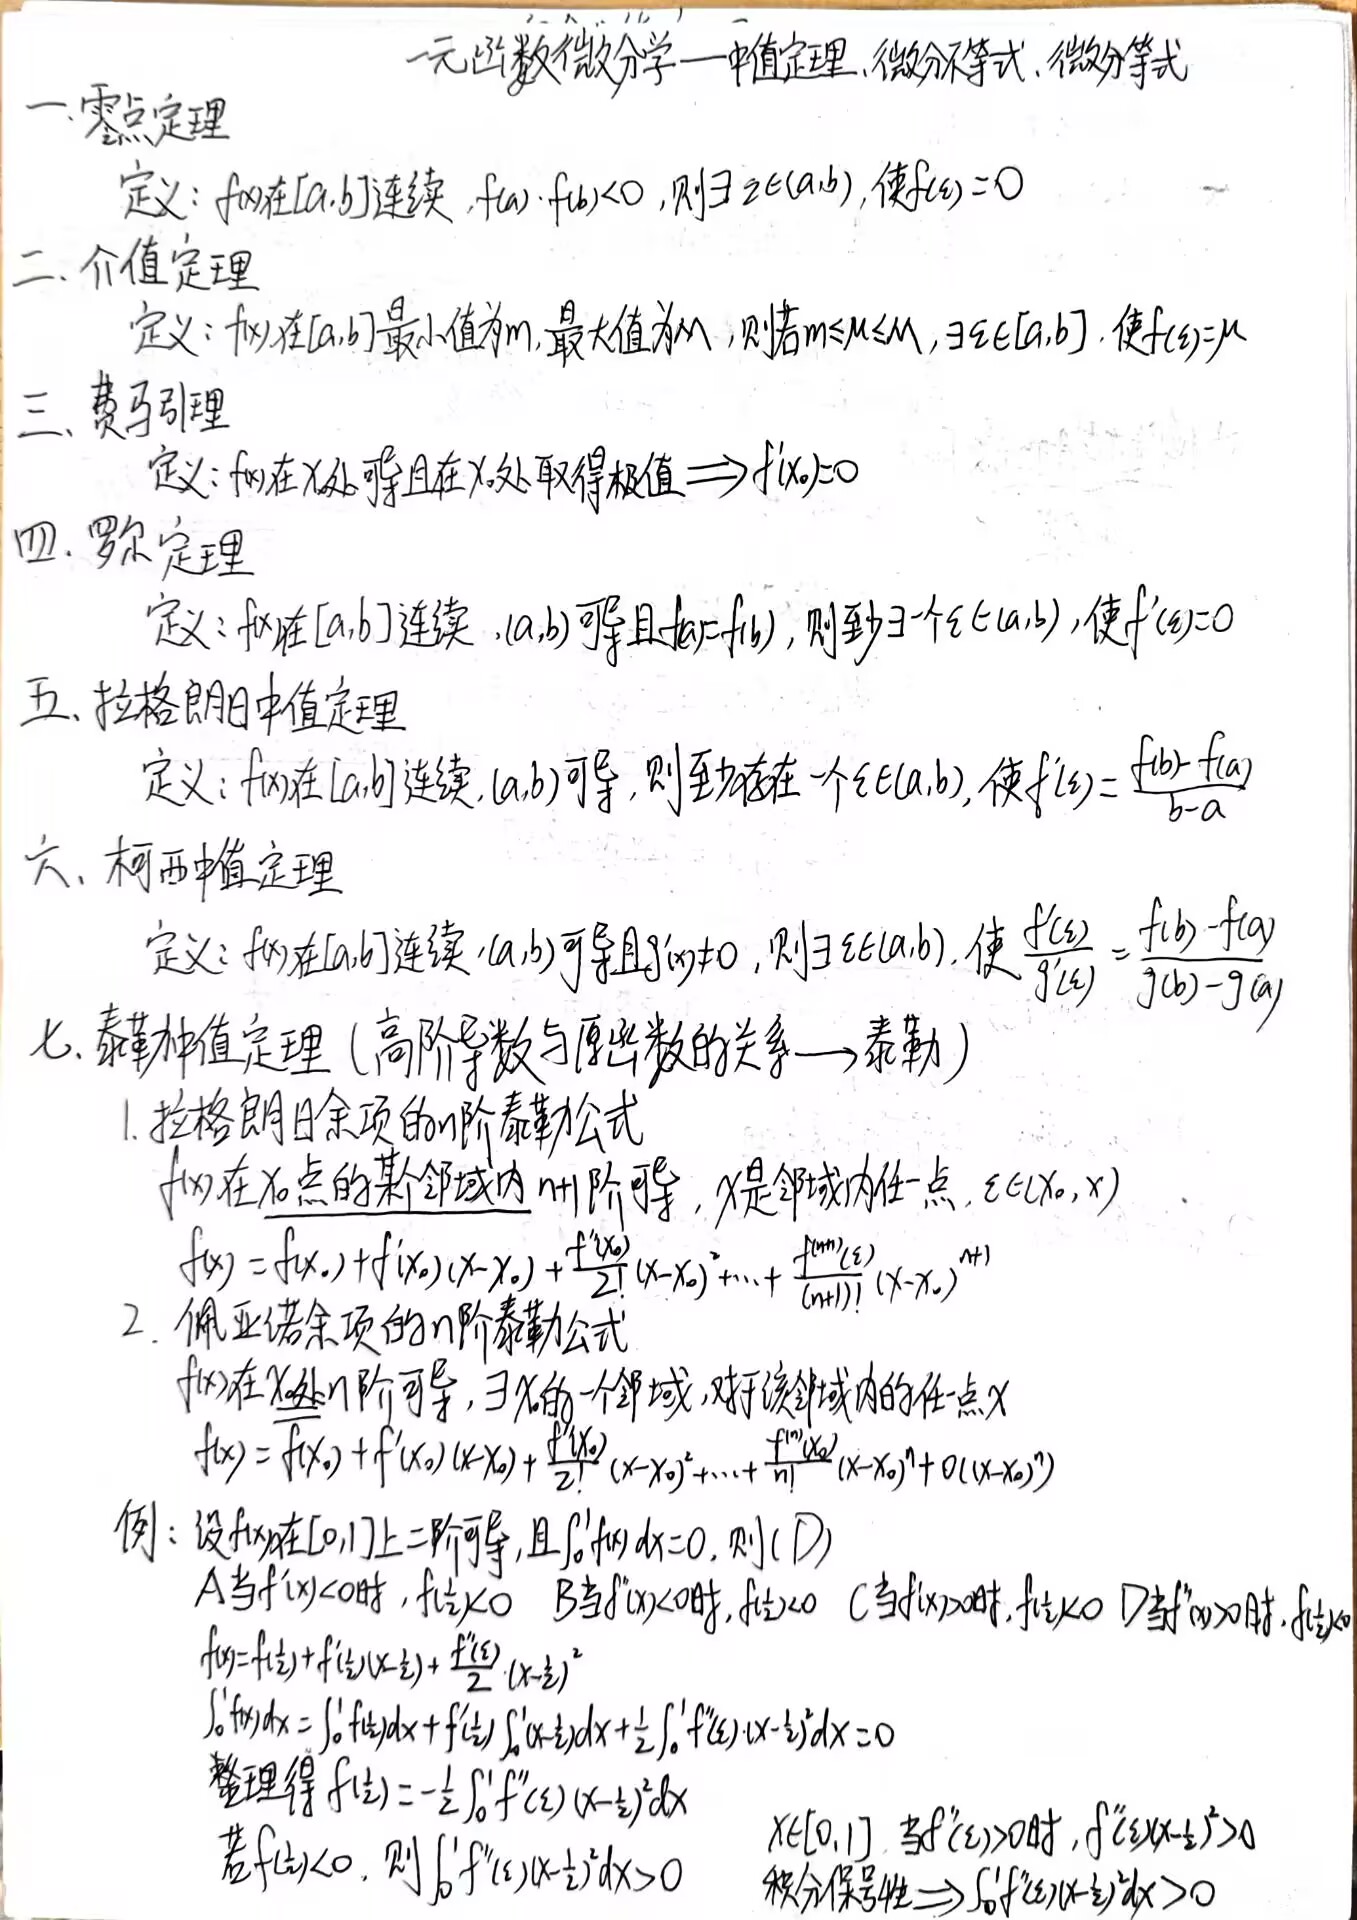 一元函数微分学—中值定理、微分不等式、微分等式
一.零点定理
定义: f(x)在[a,b]连续,f(a)·f(b)<0,则∃ξ∈(a,b),使f(ξ)=0
二、介值定理
定义: f(x)在[a,b]最小值为m,最大值为M,则若m≤μ≤M,∃ξ∈[a,b],使f(ξ)=μ
三、费马引理
定义: f(x)在x₀处可导且在x₀处取得极值⟹f'(x₀)=0
四.罗尔定理
定义: f(x)在[a,b]连续,(a,b)可导且f(a)=f(b),则至少∃一个ξ∈(a,b),使f'(ξ)=0
五、拉格朗日中值定理
定义: f(x)在[a,b]连续,(a,b)可导,则至少存在一个ξ∈(a,b),使f'(ξ)=\frac{f(b)-f(a)}{b-a}
六、柯西中值定理
定义: f(x)在[a,b]连续,(a,b)可导且g'(x)≠0,则∃ξ∈(a,b),使\frac{f'(ξ)}{g'(ξ)}=\frac{f(b)-f(a)}{g(b)-g(a)}
七、泰勒中值定理(高阶导数与原函数的关系→泰勒)
1.拉格朗日余项的n阶泰勒公式
f(x)在x₀点的某个邻域内n+1阶可导,x是邻域内任一点,ξ∈(x₀,x)
f(x)=f(x₀)+f'(x₀)(x-x₀)+\frac{f''(x₀)}{2!}(x-x₀)²+…+\frac{f^{(n+1)}(ξ)}{(n+1)!}(x-x₀)^{n+1}
2.佩亚诺余项的n阶泰勒公式
f(x)在x₀处n阶可导,∃x₀的一个邻域,对于该邻域内的任一点x
f(x)=f(x₀)+f'(x₀)(x-x₀)+\frac{f''(x₀)}{2!}(x-x₀)²+…+\frac{f^{(n)}(x₀)}{n!}(x-x₀)^n+o((x-x₀)^n)
例: 设f(x)在[0,1]上二阶可导,且∫₀¹f(x)dx=0,则(D)
A当f'(x)<0时,f(½)<0 B当f''(x)<0时,f(½)<0 C当f'(x)>0时,f(½)<0 D当f''(x)>0时,f(½)<0
f(x)=f(½)+f'(½)(x-½)+\frac{f''(ξ)}{2}·(x-½)²
∫₀¹f(x)dx=∫₀¹f(½)dx+f'(½)∫₀¹(x-½)dx+½∫₀¹f''(ξ)·(x-½)²dx=0
整理得f(½)=-½∫₀¹f''(ξ)(x-½)²dx
若f(½)<0,则∫₀¹f''(ξ)(x-½)²dx>0
x∈[0,1],当f''(ξ)>0时,f''(ξ)(x-½)²>0
积分保号性⟹∫₀¹f''(ξ)(x-½)²dx>0